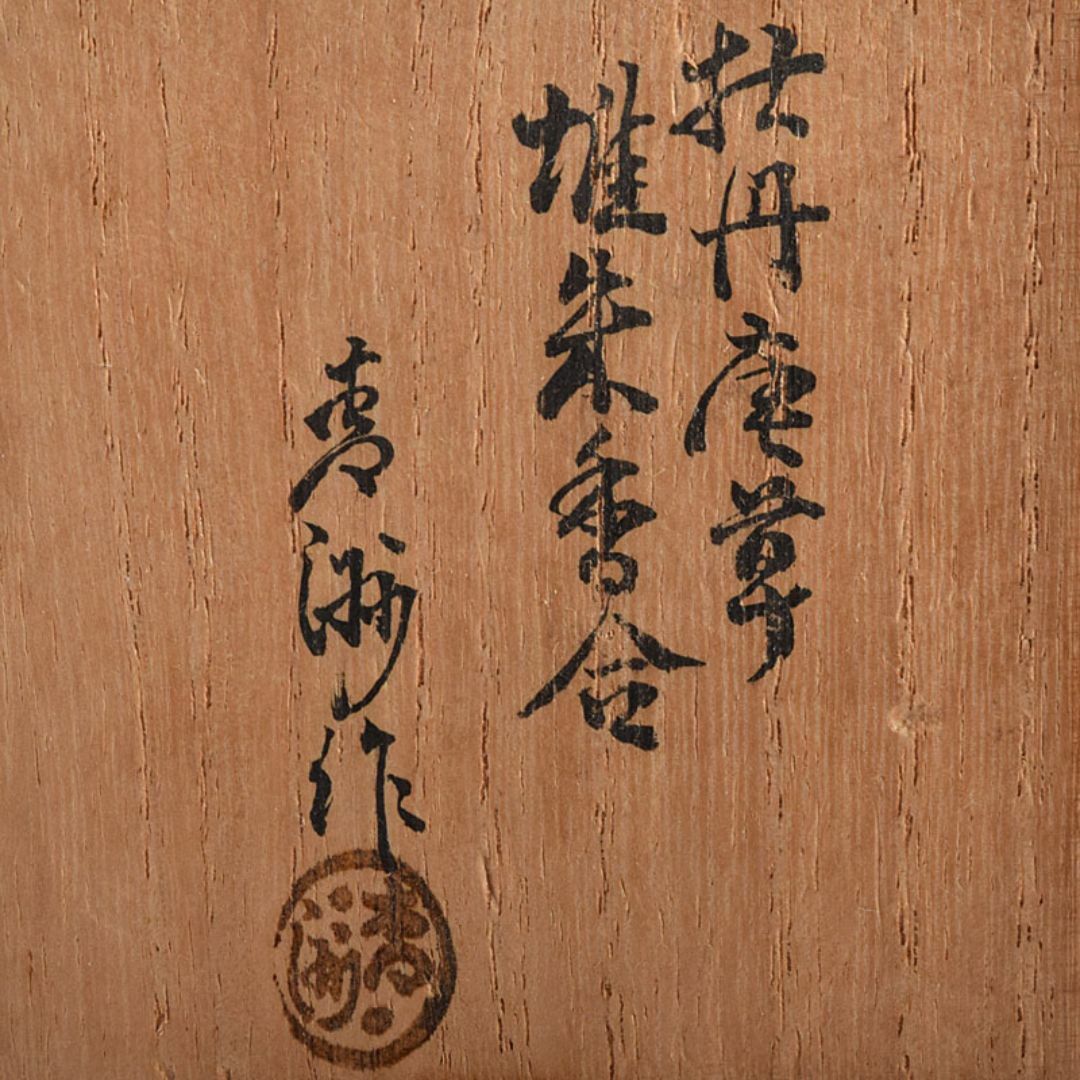 牡丹唐草
堆朱香合
青洲作
青洲